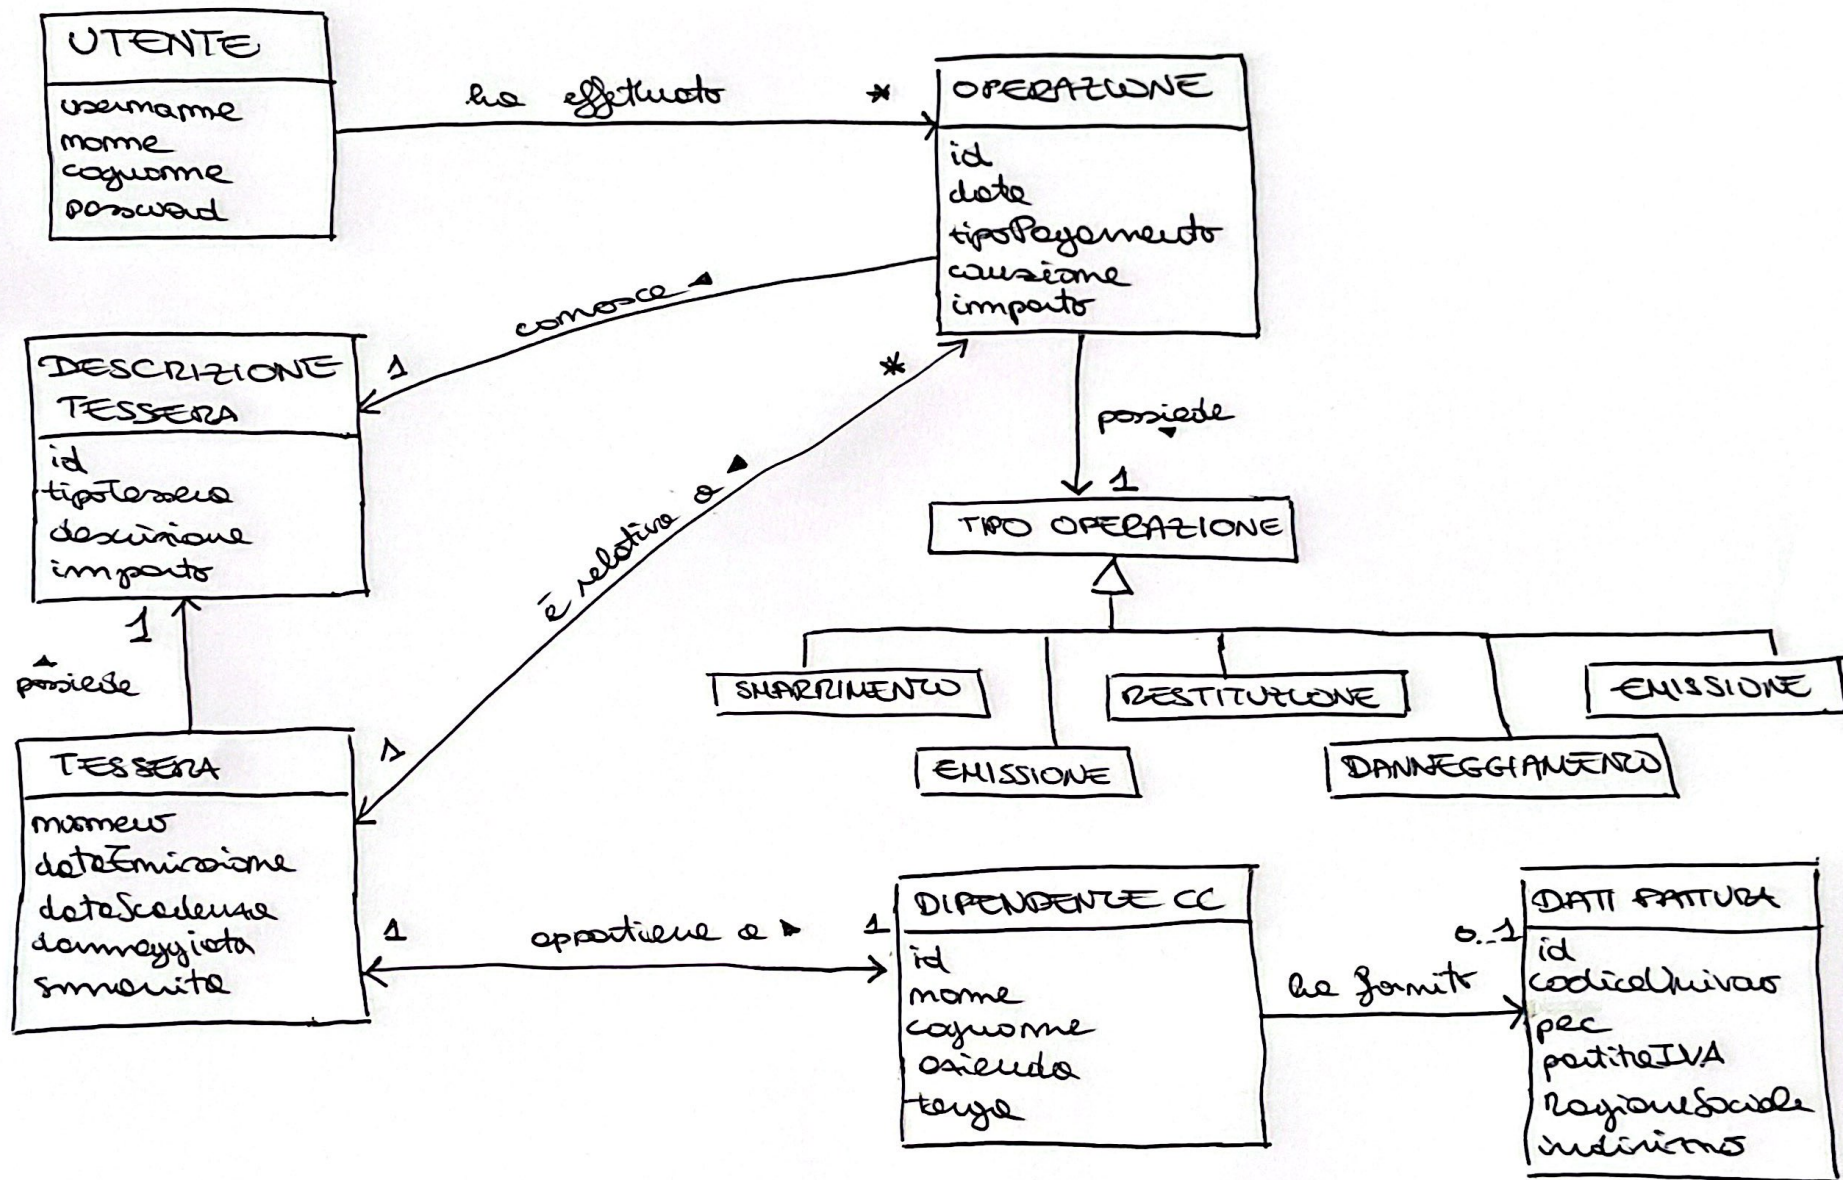 UTENTE
username
nome
cognome
password
ha effettuato
*
OPERAZIONE
id
data
tipoPagamento
cauzione
importo
conosce
1
DESCRIZIONE
TESSERA
id
tipoTessera
descrizione
importo
1
possiede
è relativa a
*
1
possiede
1
TIPO OPERAZIONE
SMARRIMENTO
EMISSIONE
RESTITUZIONE
DANNEGGIAMENTO
EMISSIONE
TESSERA
numero
dataEmissione
dataScadenza
danneggiata
smarrita
1
appartiene a
1
DIPENDENTE CC
id
nome
cognome
azienda
targa
ha fornito
0..1
DATI FATTURA
id
codiceUnivoco
pec
partitaIVA
RagioneSociale
indirizzo